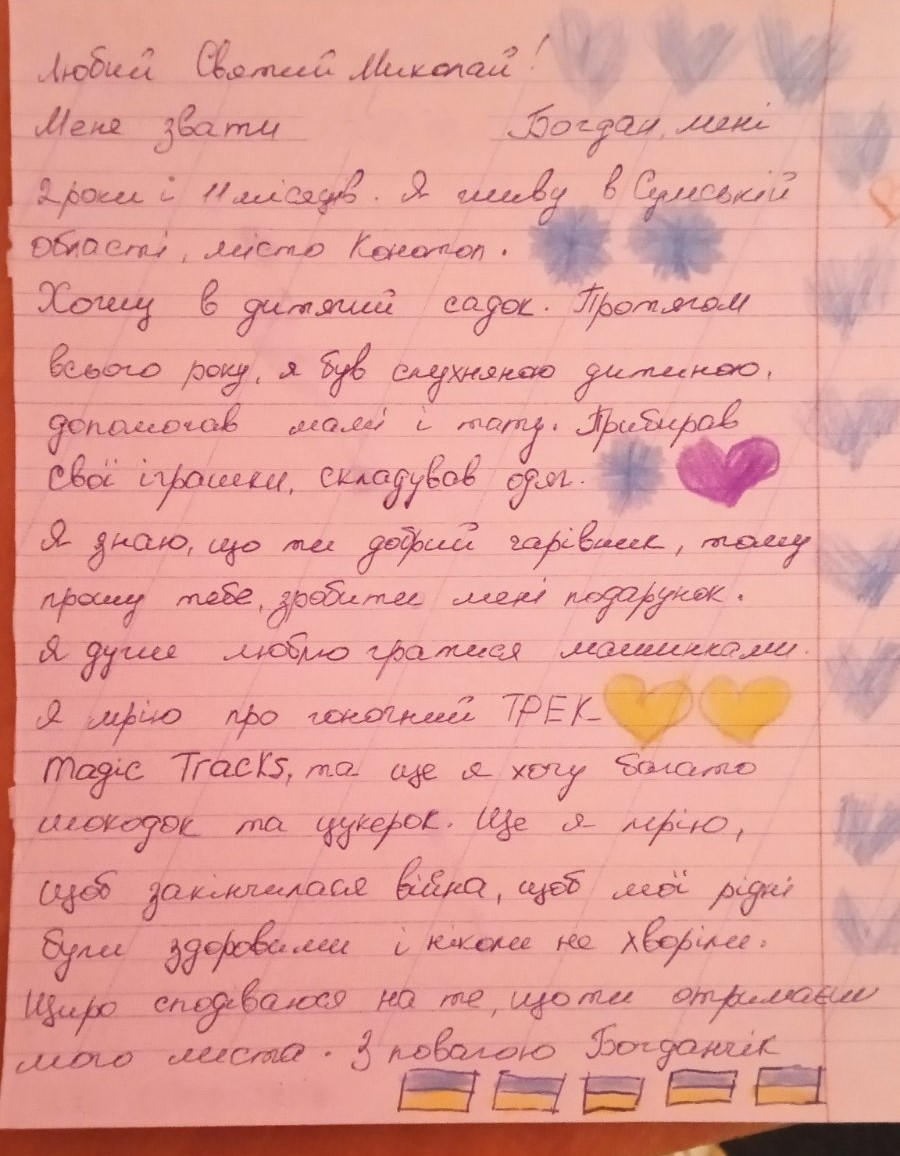 Любий Святий Миколай!
Мене звати Богдан, мені
2 роки і 11 місяців. Я живу в Сумській
області, місто Конотоп.
Хожу в дитячий садок. Протягом
всього року, я був слухняною дитиною,
допомогав мамі і тату. Прибирав
свої іграшки, складував одяг.
Я знаю, що ти добрий чарівник, тому
прошу тебе, зробити мені подарунок.
Я дуже люблю гратися машинками.
Я мрію про гоночний ТРЕК
Magic Tracks, та ще я хочу багато
шокодок та цукерок. Ще я мрію,
щоб закінчилася війна, щоб мої рідні
були здоровими і ніколи не хворіли.
Щиро сподіваюся на те, що ти отримаєш
мого листа. З повагою Богданчік